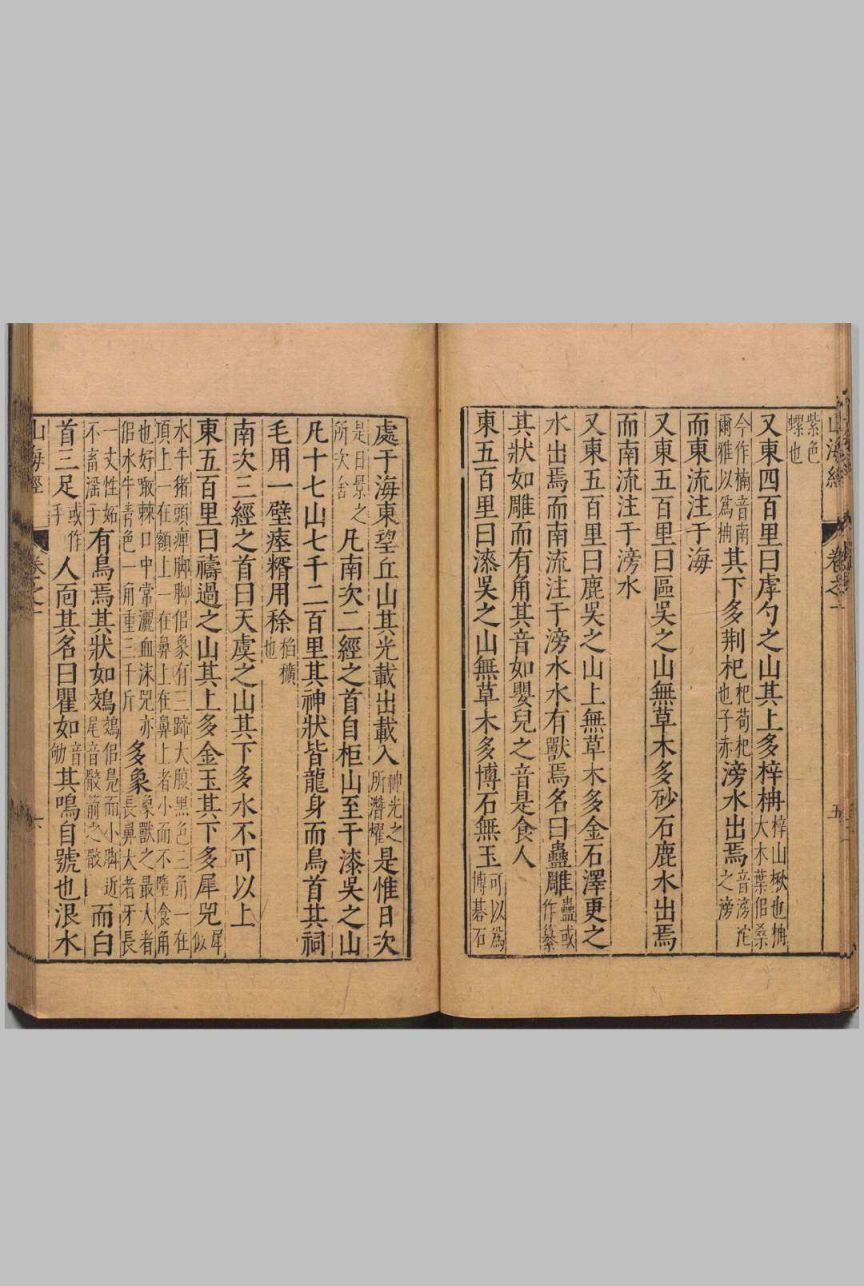 紫色
螺也
又東四百里曰虖勺之山其上多梓枏梓山楸也枏
大木葉佀桑
今作楠音南
爾雅以爲枏其下多荆杞杞苟杞
也子赤滂水出焉音滂沱
之滂
而東流注于海
又東五百里曰區吳之山無草木多砂石鹿水出焉
而南流注于滂水
又東五百里曰鹿吳之山上無草木多金石澤更之
水出焉而南流注于滂水水有獸焉名曰蠱雕蠱或
作纂
其狀如雕而有角其音如嬰兒之音是食人
東五百里曰漆吳之山無草木多博石無玉可以爲
博碁石
處于海東望丘山其光載出載入神光之
所潛燿是惟日次
是日景之
所次舍凡南次二經之首自柜山至于漆吳之山
凡十七山七千二百里其神狀皆龍身而鳥首其祠
毛用一璧瘞糈用稌稻穬
也
南次三經之首曰天虞之山其下多水不可以上
東五百里曰禱過之山其上多金玉其下多犀兕犀
似
水牛猪頭庳脚脚佀象有三蹄大腹黑色三角一在
頂上一在額上一在鼻上在鼻上者小而不墮食角
也好噉棘口中常灑血沫兕亦
佀水牛青色一角重三千斤多象象獸之最大者
長鼻大者牙長
一丈性妬
不畜淫子有鳥焉其狀如鵁鵁佀鳧而小脚近
尾音骹箭之骹而白
首三足或作
手人面其名曰瞿如音
劬其鳴自號也泿水
山海經
卷之一
五
山海經
卷之一
六